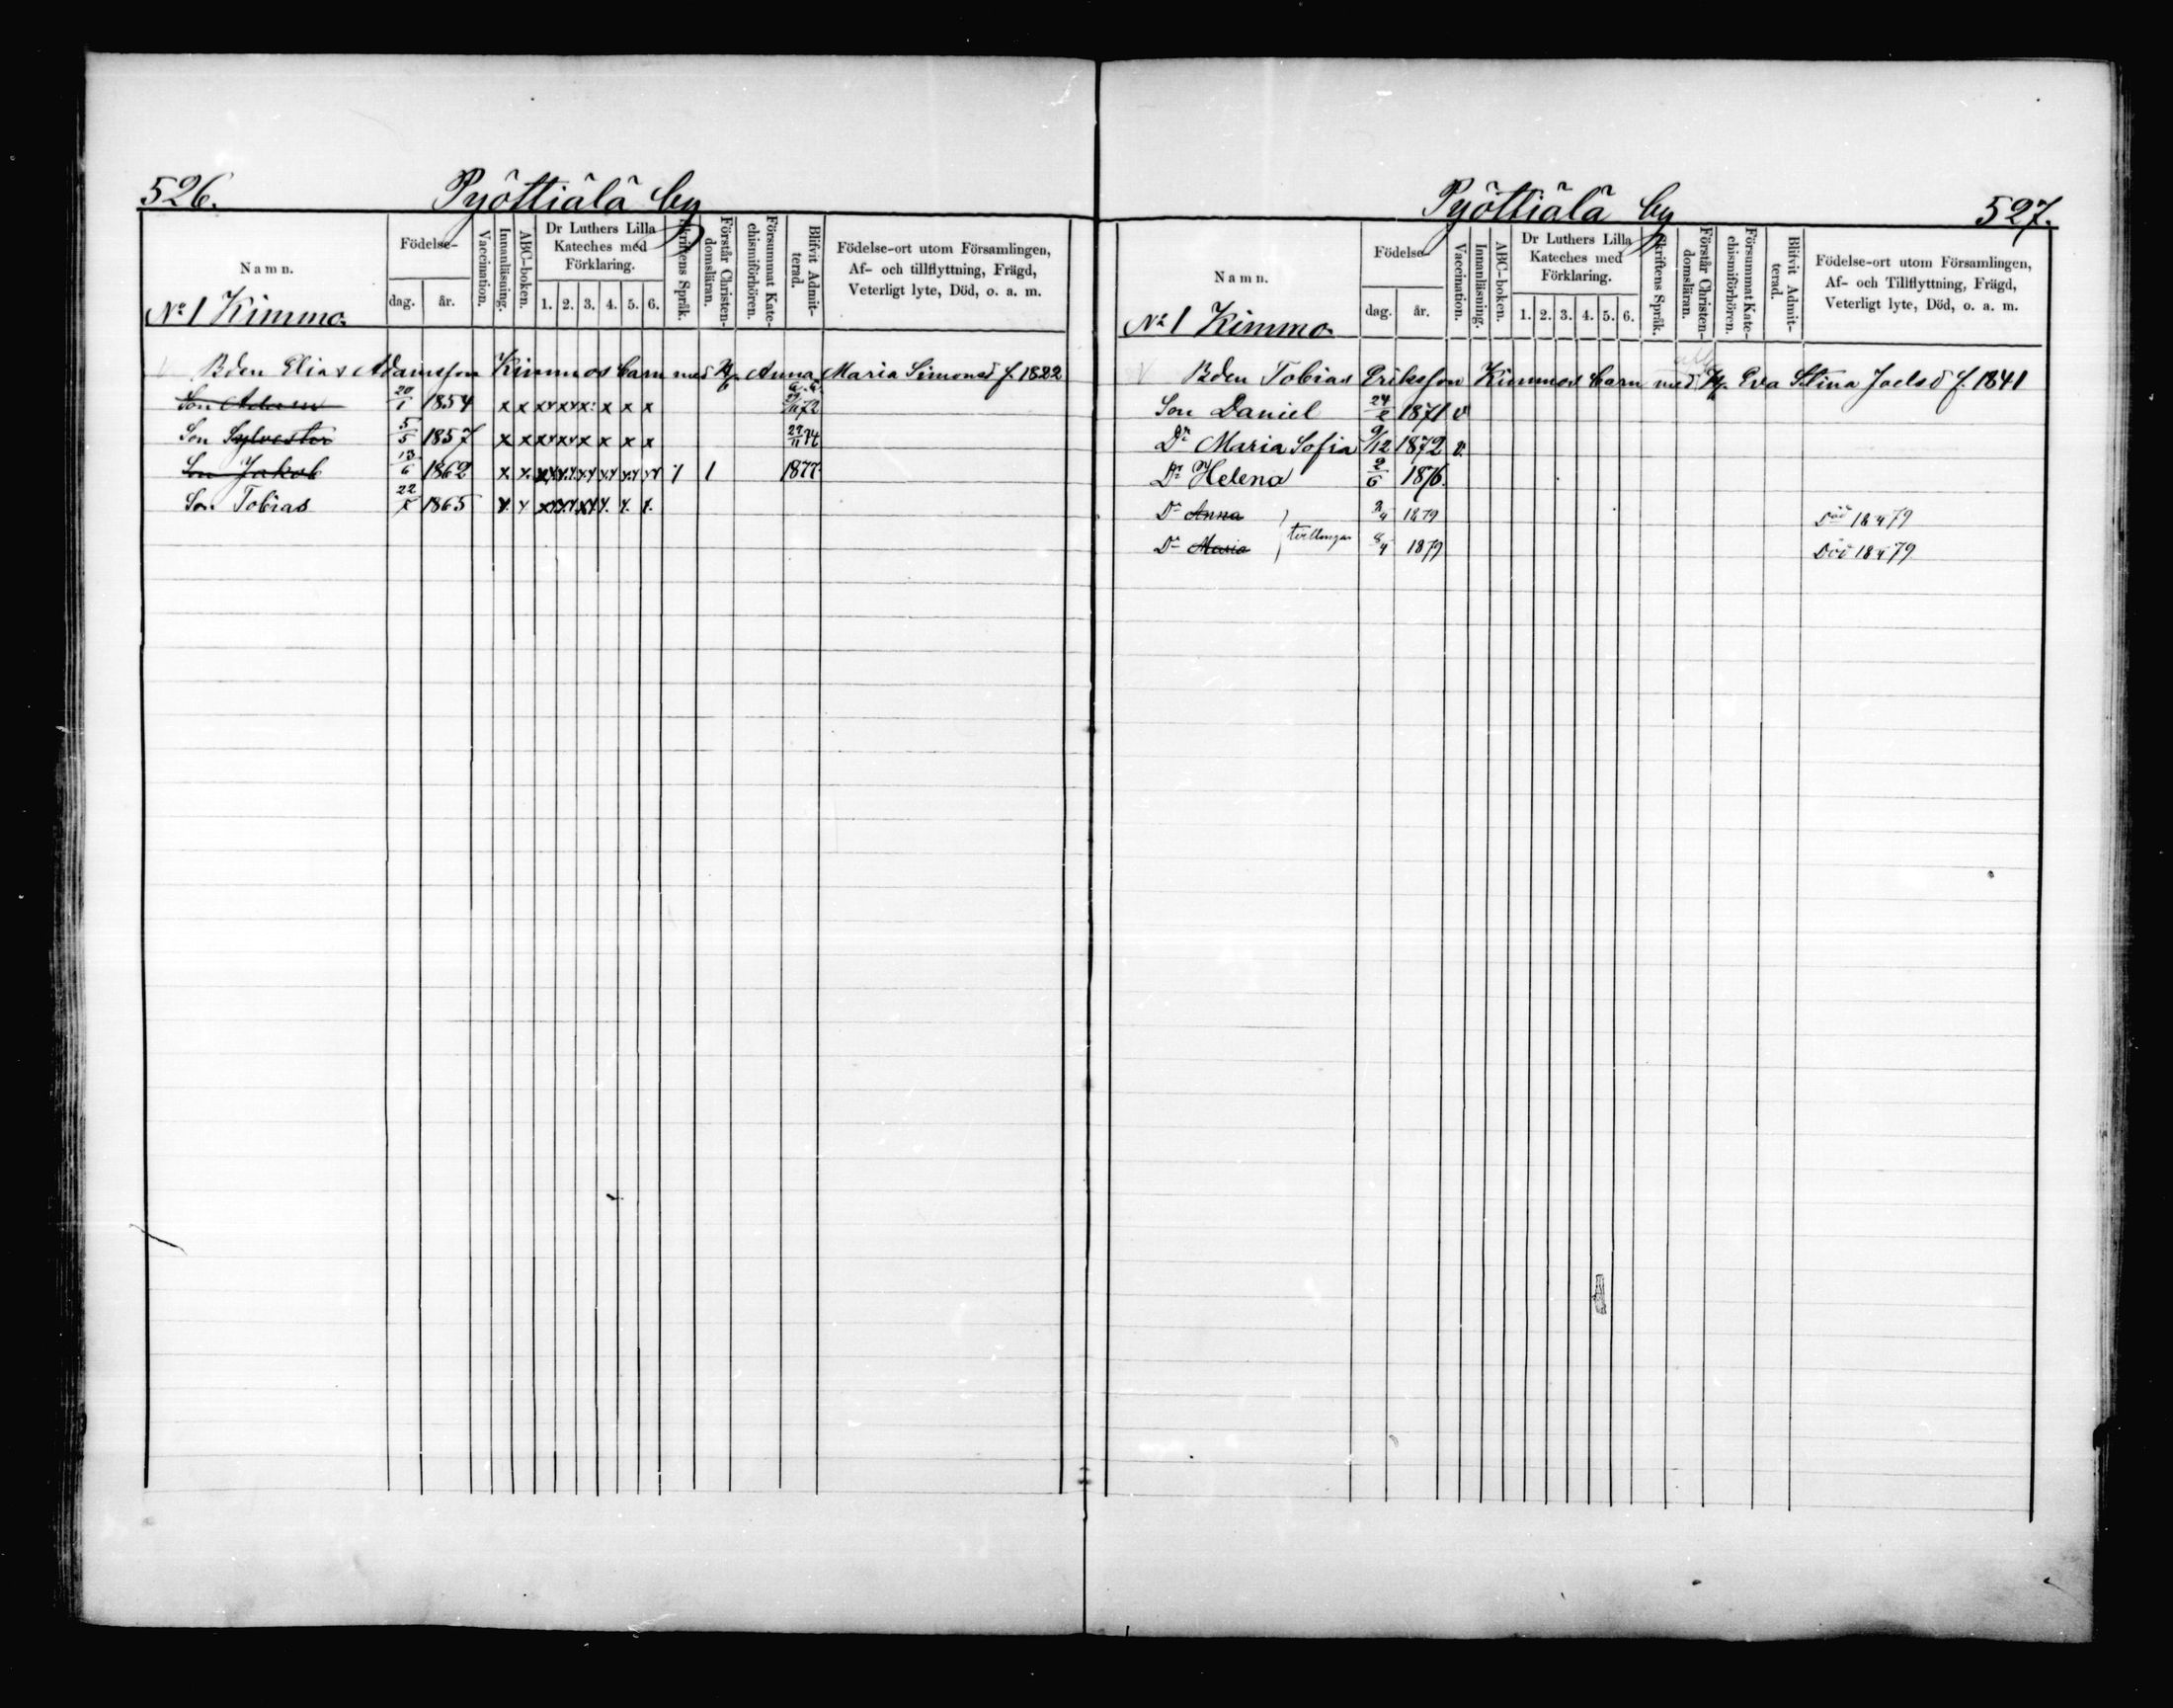 526. Pyöttiälä by
Namn. Födelse- dag. år. Vaccination. Innanläsning. ABC-boken. Dr Luthers Lilla Kateches med Förklaring. 1. 2. 3. 4. 5. 6. Skriftens Språk. Förstår Christendomsläran. Försummat Katechismiförhören. Blifvit Admitterad. Födelse-ort utom Församlingen, Af- och tillflyttning, Frägd, Veterligt lyte, Död, o. a. m.
No 1 Kimmo.
Bden Elias Adamsson Kimmos barn med H. Anna Maria Simonsd f. 1822
Son Adam 20/1 1854 x x x x x x x x
Son Sylvester 5/5 1857 x x x x x x x x
Son Jakob 13/6 1862 1877
Son Tobias 1865
Pyöttiälä by 527.
Namn. Födelse- dag. år. Vaccination. Innanläsning. ABC-boken. Dr Luthers Lilla Kateches med Förklaring. 1. 2. 3. 4. 5. 6. Skriftens Språk. Förstår Christendomsläran. Försummat Katechismiförhören. Blifvit Admitterad. Födelse-ort utom Församlingen, Af- och Tillflyttning, Frägd, Veterligt lyte, Död, o. a. m.
No 1 Kimmo.
Bden Tobias Eriksson Kimmos barn med H. Eva Stina Joelsd f. 1841
Son Daniel 1871 v
Dr Maria Sofia 9/12 1872 v.
Dr Helena 2/6 1876.
Dr Anna tvillingar 1879 Död 18 4 79
Dr Maria 1879 Död 18 4 79